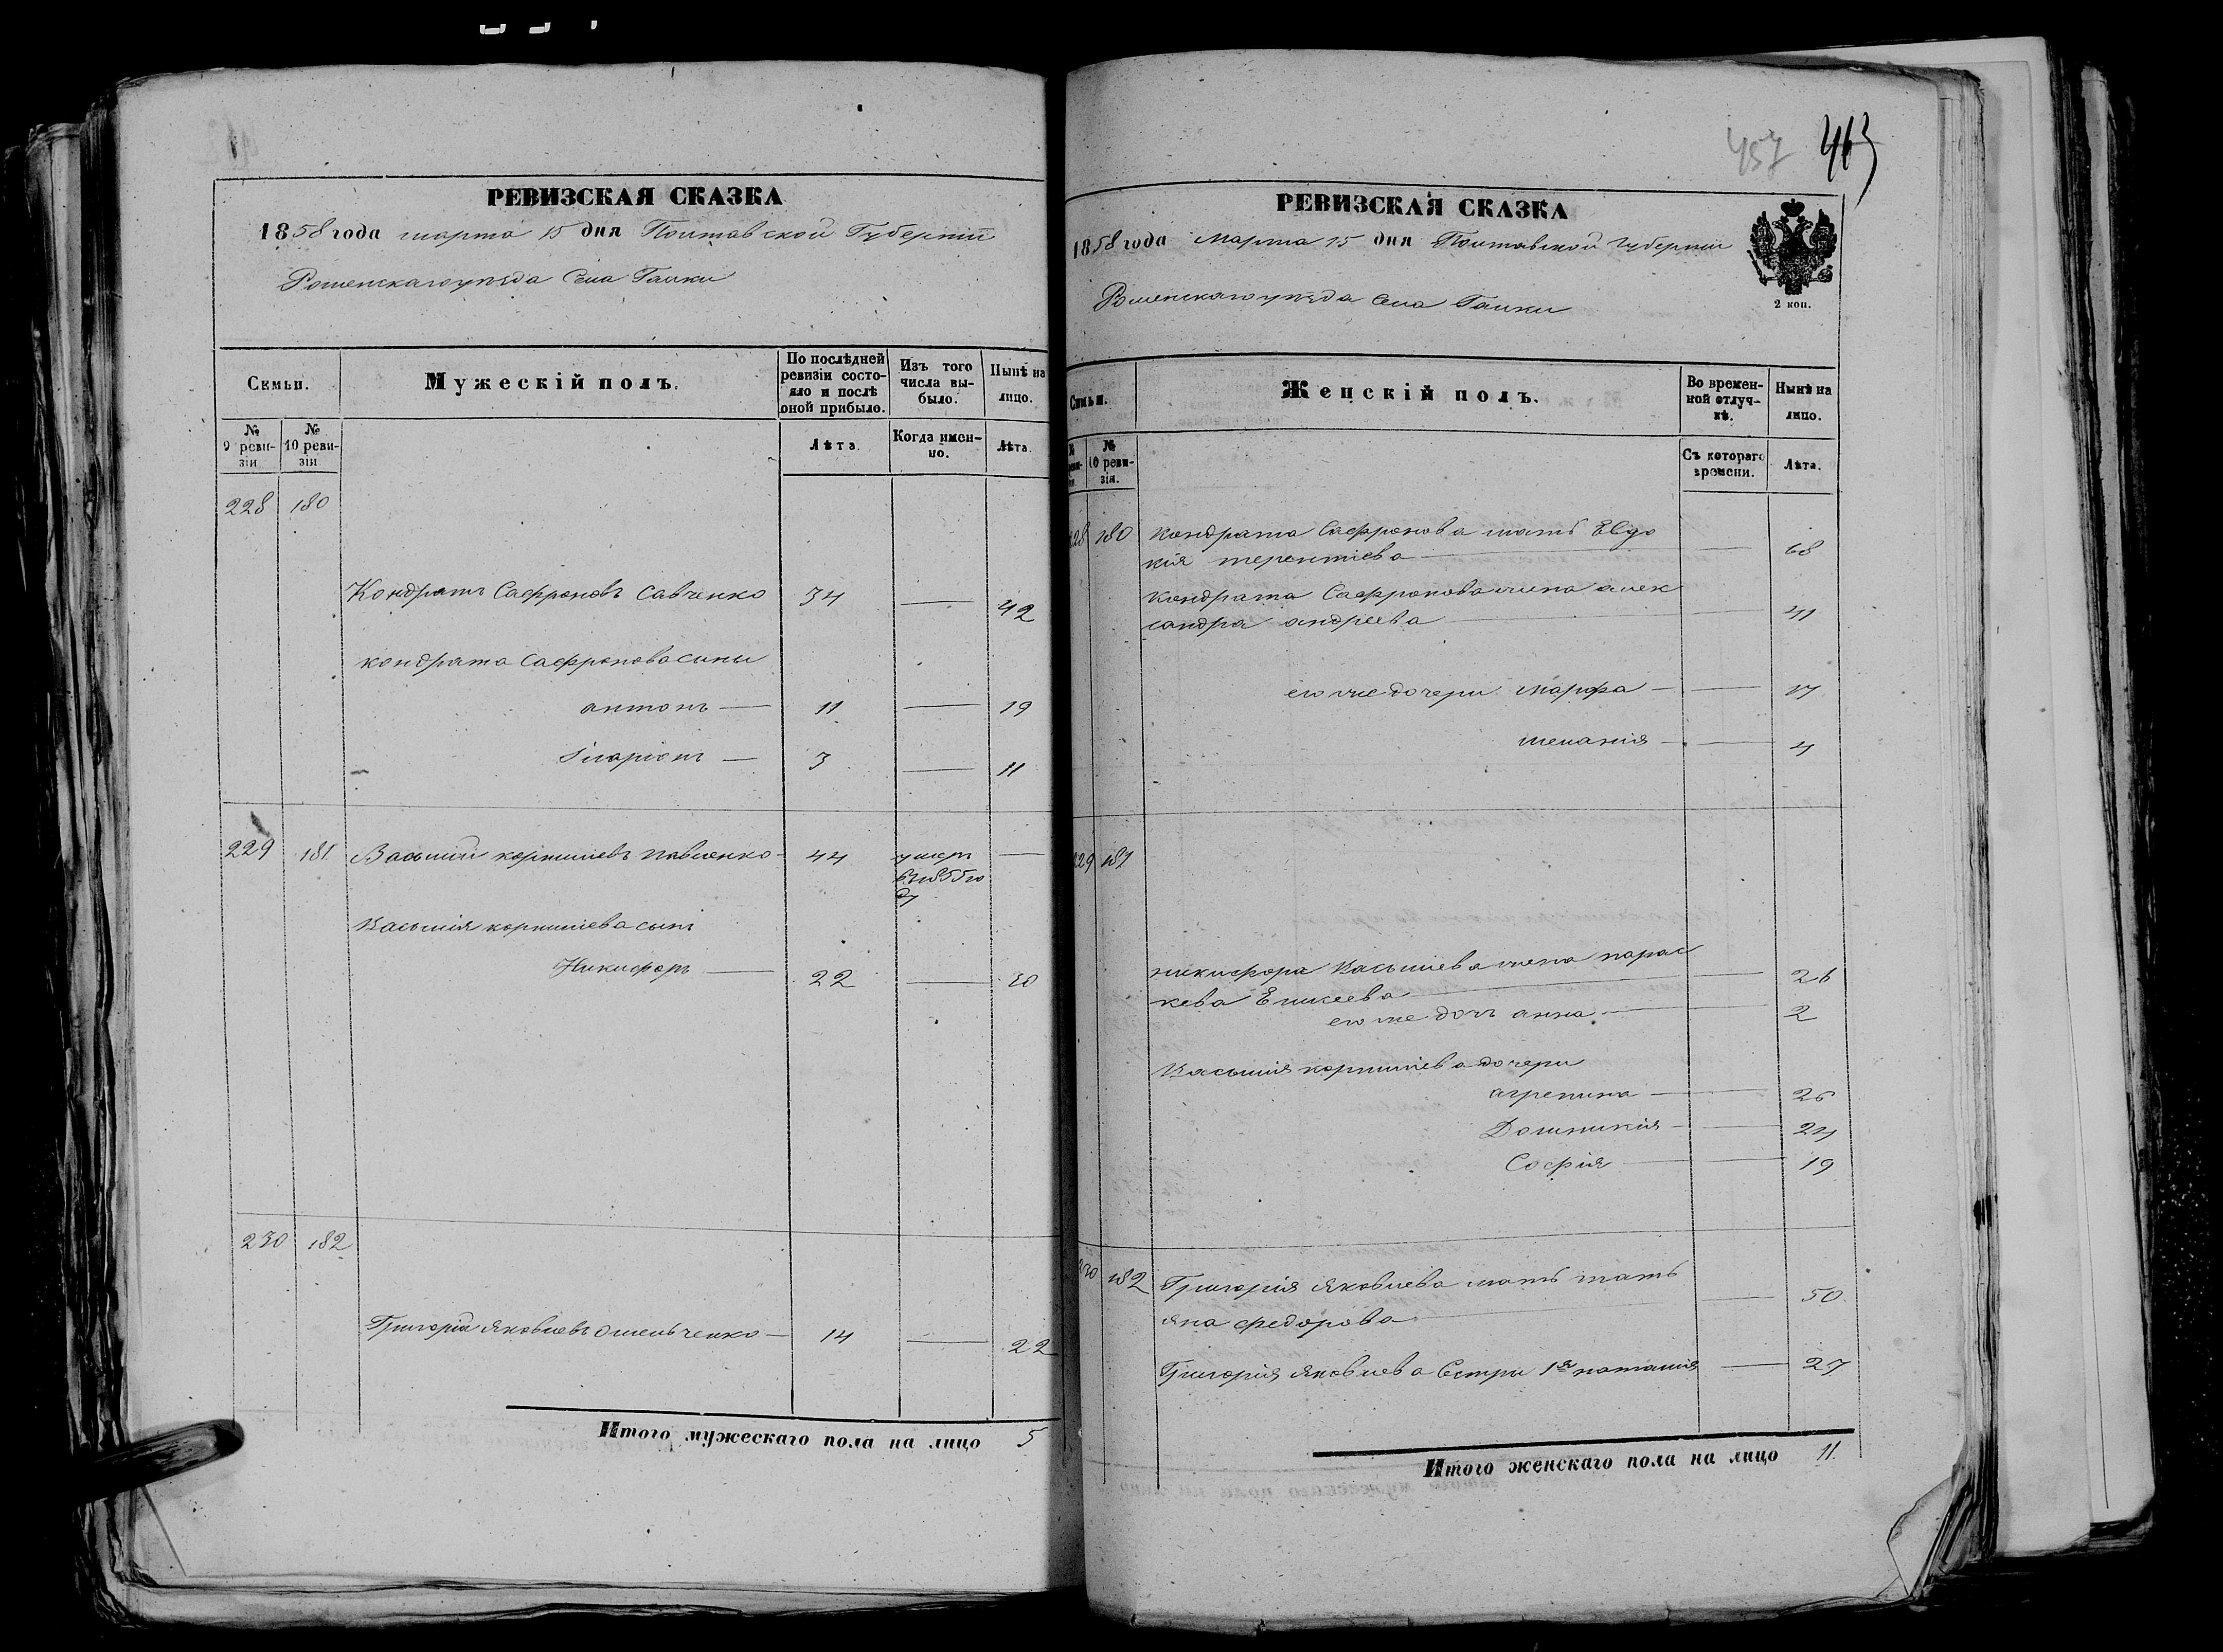 457 463
РЕВИЗСКАЯ СКАЗКА
1858 года марта 15 дня Полтавской Губерніи
Роменскаго уѣзда Села Галки
Семьи.
Мужескій полъ.
По послѣдней ревизіи состояло и послѣ оной прибыло.
Изъ того числа выбыло.
Нынѣ на лицо.
№ 9 ревизіи
№ 10 ревизіи
Лѣта.
Когда именно.
Лѣта.
228 180
Кондратъ Сафроновъ Савченко 34 — 42
кондрата Сафронова сыны
антонъ — 11 — 19
Iларіонъ — 3 — 11
229 181 Василій корниліевъ павленко 44 умеръ —
въ 1855 го
ду
Василія корниліева сынъ
Никифоръ — 22 — 30
230 182
Григорій Яковлевъ Омельченко — 14 — 22
Итого мужескаго пола на лицо 5
РЕВИЗСКАЯ СКАЗКА
1858 года Марта 15 дня Полтавской Губерніи
Роменскаго уѣзда Села Галки
2 коп.
Семьи.
Женскій полъ.
Во временной отлучкѣ.
Нынѣ на лицо.
№ 10 ревизіи.
Съ котораго времени.
Лѣта.
228 180 Кондрата Сафронова мать Евдо
кія терентіева — — 68
Кондрата Сафронова жена алек
сандра андреева — — 41
его же дочери Марфа — — 17
меланія — — 4
229 181
никифора Василіева жена парас
кева Еликеева — — 26
его же дочь анна — — 2
Василія корниліева дочери
агрепина — — 26
Домникія — — 24
Софія — — 19
230 182 Григорія Яковлева мать тать
яна федорова — — 50
Григорія Яковлева Сестры 1я наталія — 27
Итого женскаго пола на лицо 11.